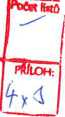 Počet listů
PŘÍLOH:
4x